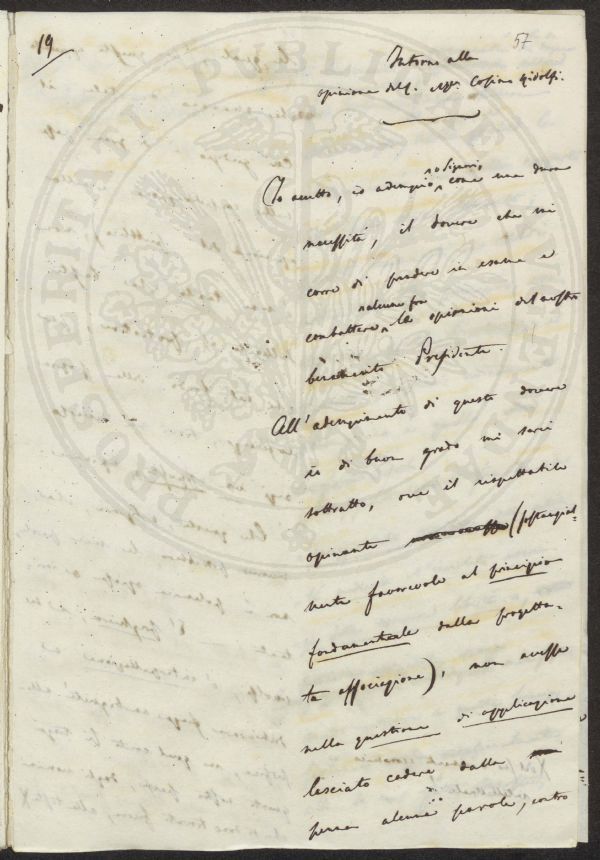 19
57
Intorno alla
opinione del S. Cosimo Ridolfi.
Io accetto, io adempio, o Signori, come una dura
necessità, il dovere che mi
corre di prendere in esame e
combattere alcune fra le opinioni del nostro
benemerito Presidente.
All'adempimento di questo dovere
io di buon grado mi sarei
sottratto, ove il rispettabile
opinante (sostanzial-
mente favorevole al principio
fondamentale della progetta-
ta associazione), non avesse
nella questione di applicazione
lasciato cadere dalla
penna alcune parole, contro
PROSPERITATI PUBLICAE